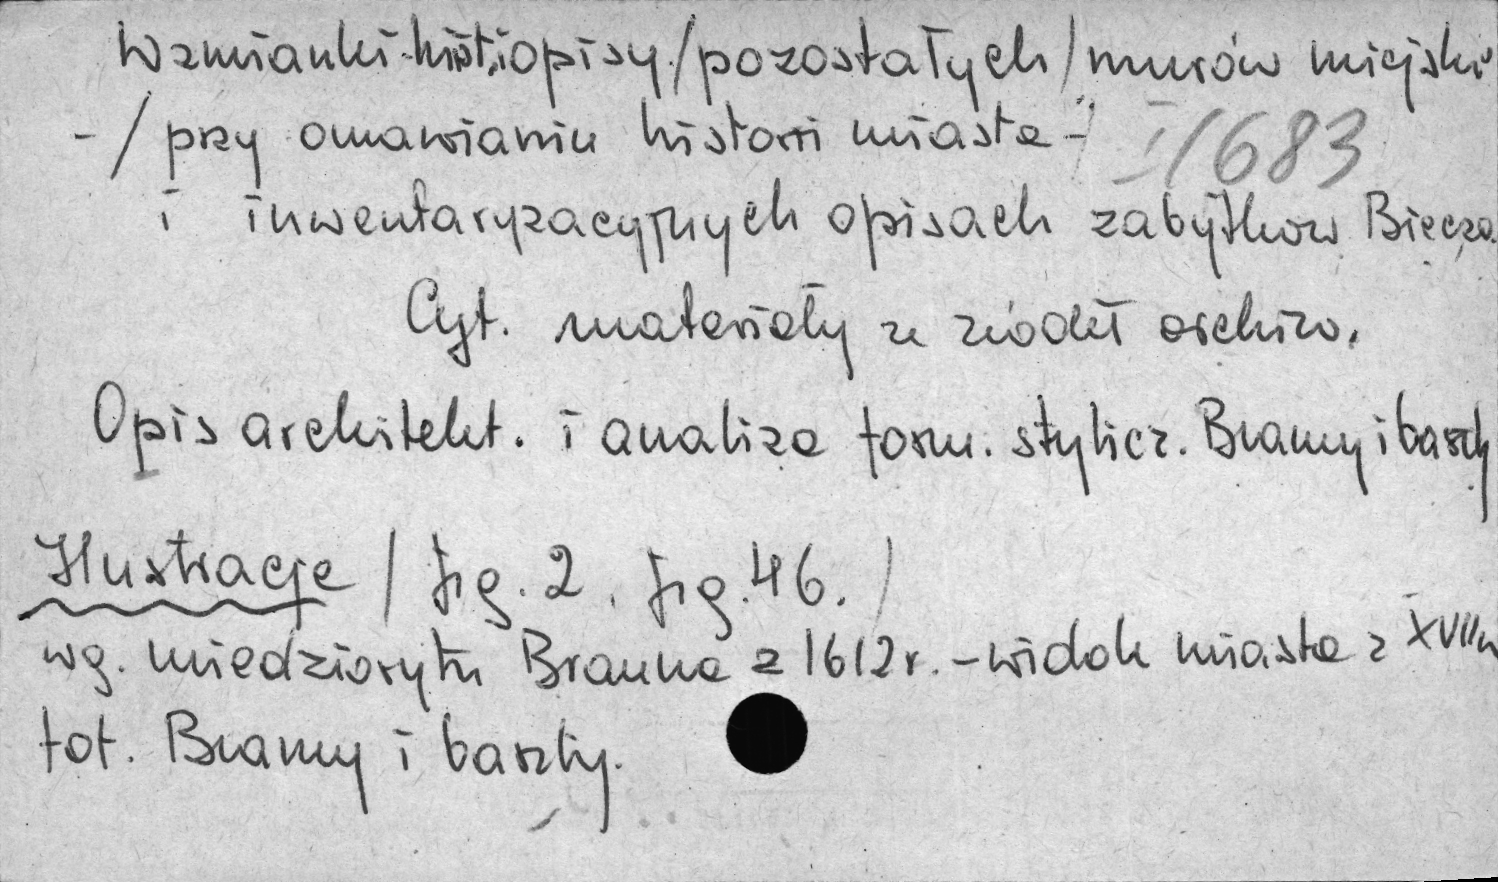 Wzmianki hist. i opisy /pozostałych/ murów miejski
-/ przy omawianiu historii miasta - I/683
i inwentaryzacyjnych opisach zabytków Biecza.
Cyt. materiały ze źródeł archiw.
Opis architekt. i analiza form. stylicz. Bramy i baszty
Ilustracje / fig. 2, fig. 46. /
wg. miedziorytu Brauna z 1612 r. - widok miasta z XVII w
fot. Bramy i baszty.